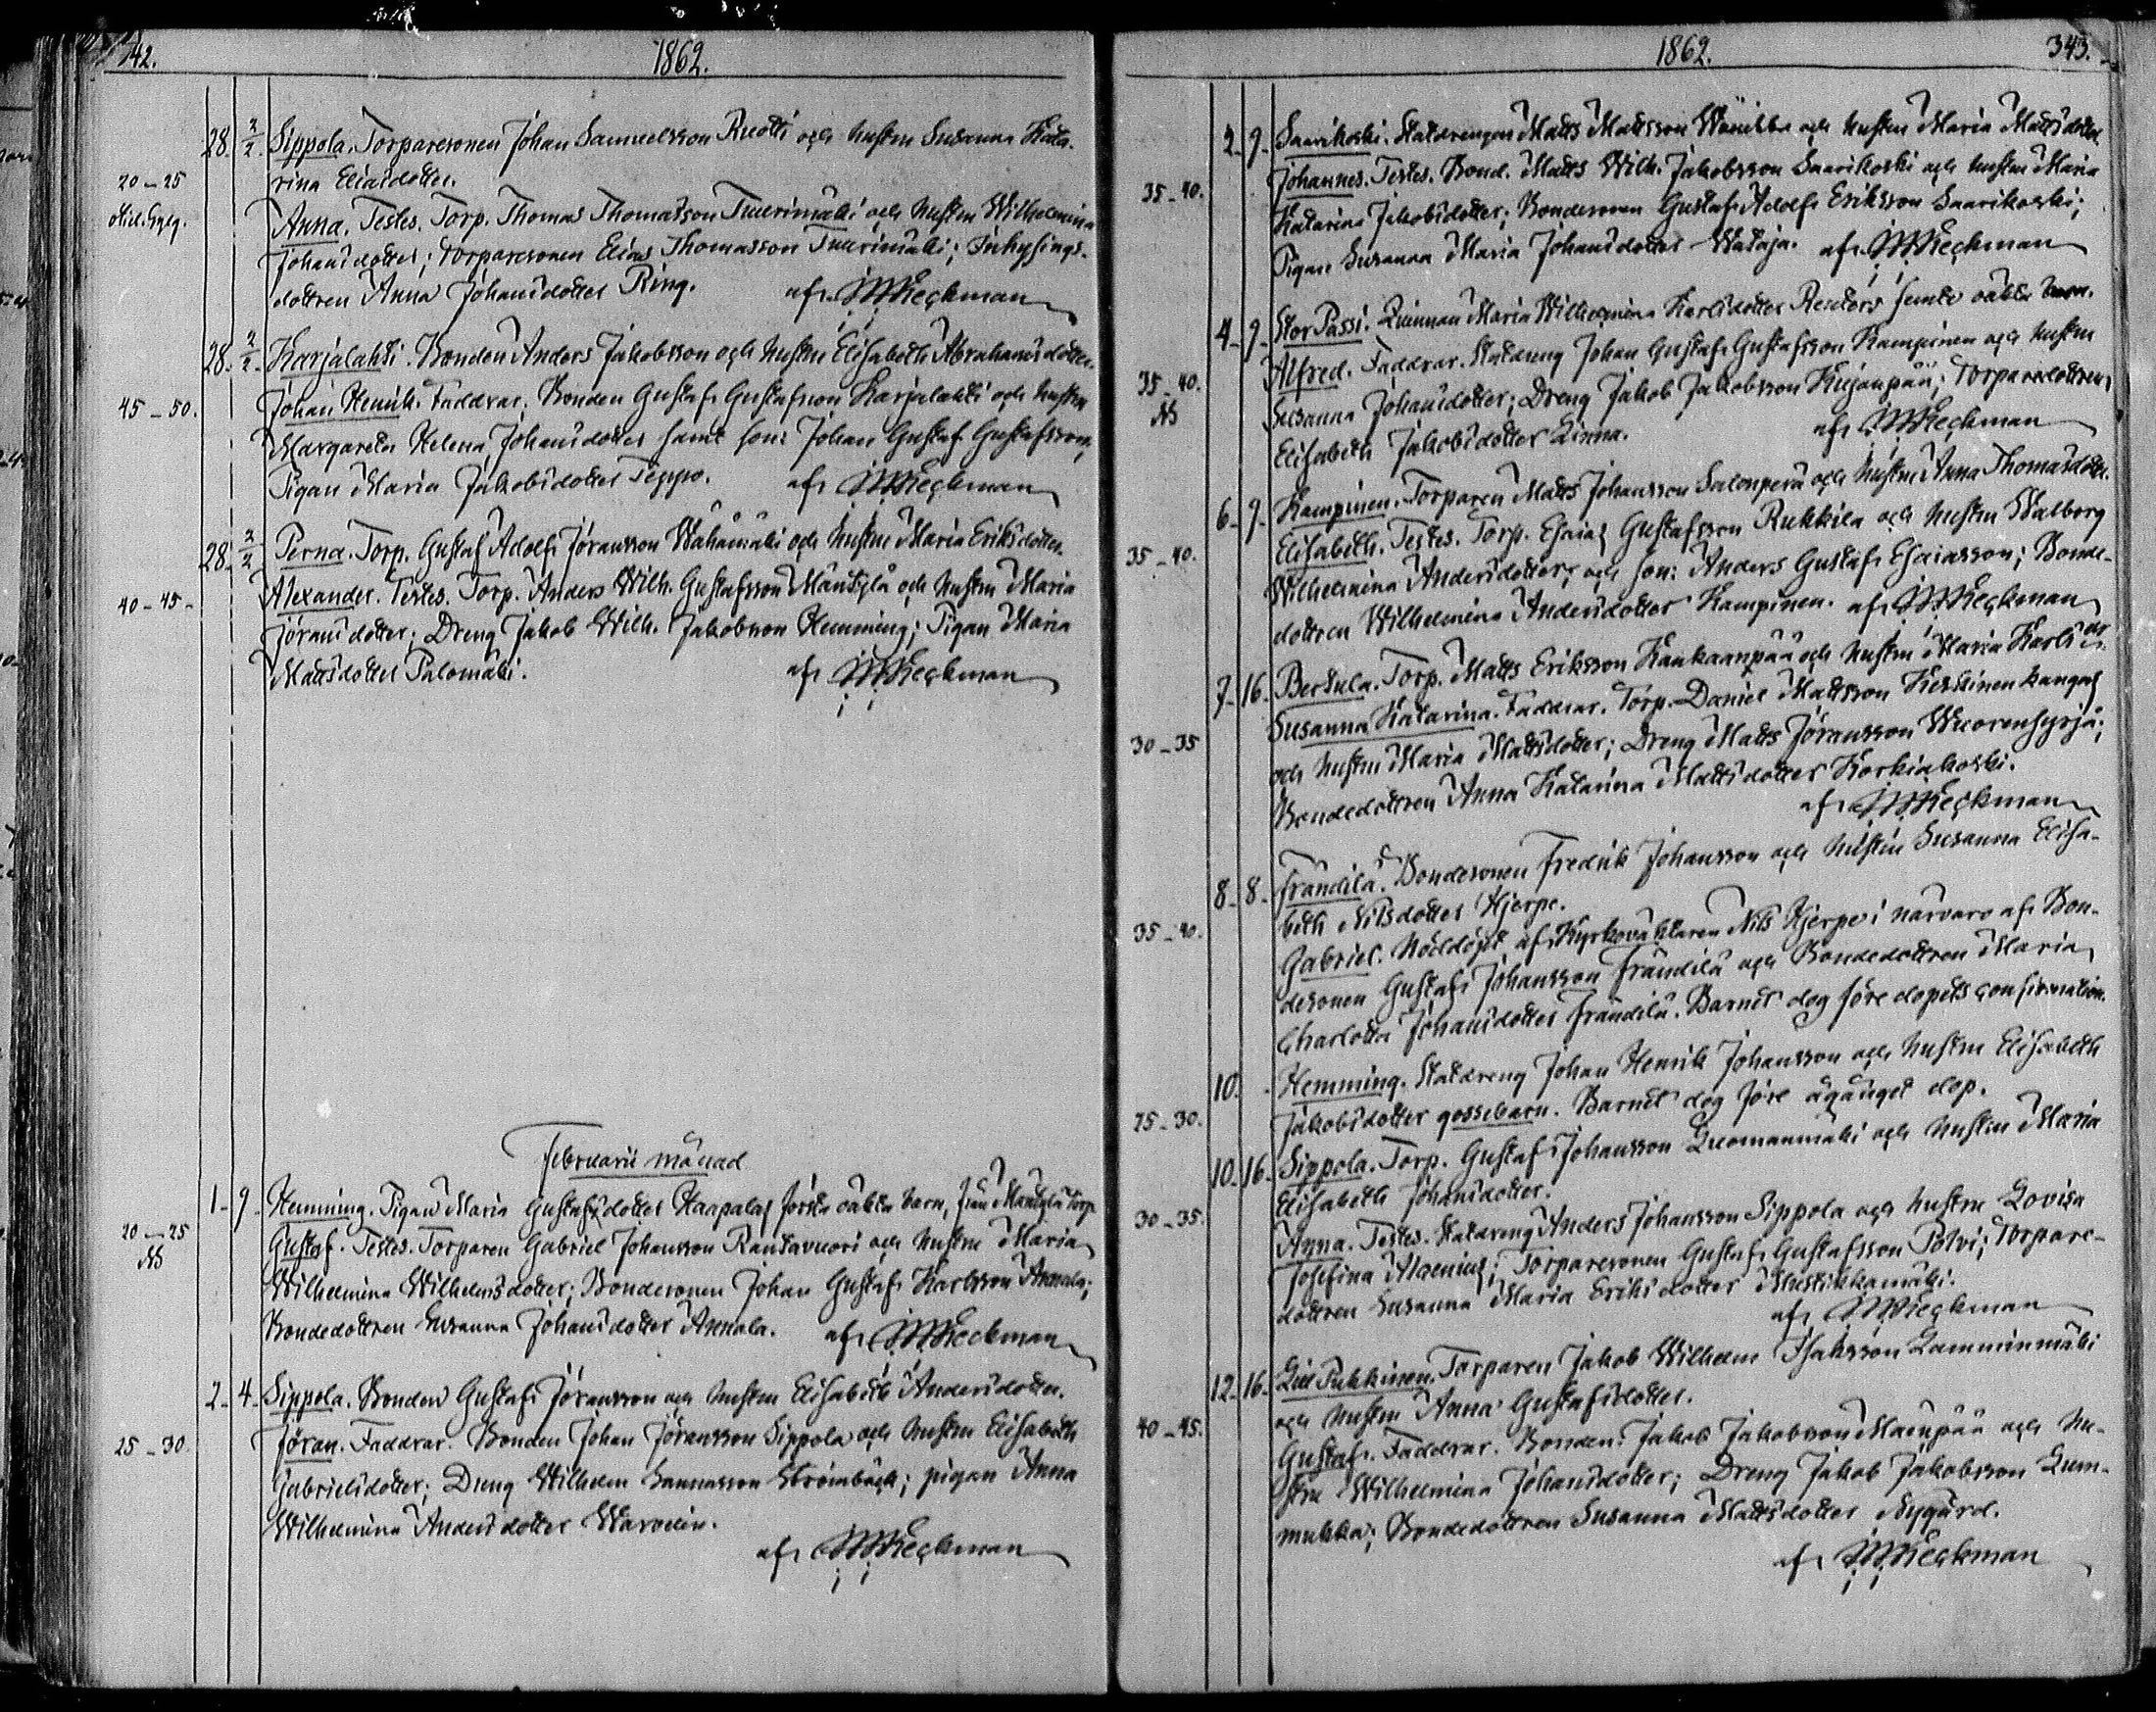 342.
1862.
28. 2/2. Sippola. Torparesonen Johan Samuelsson Ruotti och hustru Susanna Kata-
rina Eliædotter.
20-25
Anna. Testes. Torp. Thomas Thomasson Tuurimäki och hustru Wilhelmina
Johansdotter; Torparesonen Elias Thomasson Tuurimäki; Inhysings-
dottren Anna Johansdotter Ring. af Heckman
28. 2/2. Karjalahti. Bonden Anders Jakobsson och hustru Elisabeth Abrahamsdotter.
45-50.
Johan Henrik. Faddrar. Bonden Gustaf Gustafsson Karjalahti och hustru
Margareta Helena Johansdotter samt son: Johan Gustaf Gustafsson,
Pigan Maria Jakobsdotter Teppo. af Heckman
28. 2/2. Perna. Torp. Gustaf Adolf Jöransson Wähämäki och hustru Maria Eriksdotter.
40-45.
Alexander. Testes. Torp. Anders Wilh. Gustafsson Mäntylä och hustru Maria
Jöransdotter; Dreng Jakob Wilh. Jakobsson Hemming; Pigan Maria
Mattsdotter Palomäki. af Heckman
Februarii månad
1. 9. Hemming. Pigan Maria Gustafsdotter Haapalas första oäkta barn, från Mäntylä Torp
20-25
Gustaf. Testes. Torparen Gabriel Johansson Rantavuori och hustru Maria
Wilhelmina Wilhelmsdotter; Bondesonen Johan Gustaf Karlsson Annala;
Bondedottren Susanna Johansdotter Annala. af Heckman
2. 4. Sippola. Bonden Gustaf Jöransson och hustru Elisabeth Andersdotter.
25-30.
Jöran. Faddrar. Bonden Johan Jöransson Sippola och hustru Elisabeth
Gabrielsdotter; Dreng Wilhelm Strömbäck; pigan Anna
Wilhelmina Andersdotter
af Heckman
1862.
343.
2. 9. Saarikoski. Statdrengen Matts Mattsson och hustru Maria Mattsdotter.
35-40.
Johannes. Testes. Bond. Matts Wilh. Jakobsson Saarikoski och hustru Maria
Katarina Jakobsdotter; Bondesonen Gustaf Adolf Eriksson Saarikoski;
Pigan Susanna Maria Johansdotter Wataja. af Heckman
4. 9. Stor Passi. Qvinnan Maria Wilhelmina Karlsdotter femte oäkta barn.
35-40.
Alfred. Faddrar. Statdreng Johan Gustaf Gustafsson Kampinen och hustru
Susanna Johansdotter; Dreng Jakob Jakobsson Kujanpää; Torparedottren
Elisabeth Jakobsdotter Linna. af Heckman
6. 9. Kampinen. Torparen Matts Johansson Salonperä och hustru Anna Thomasdotter.
35-40.
Elisabeth. Testes. Torp. Esaias Gustafsson Rukkila och hustru Walborg
Wilhelmina Andersdotter, och son: Anders Gustaf Esaiasson; Bonde-
dottren Wilhelmina Andersdotter Kampinen. af Heckman
7. 16. Bertula. Torp. Matts Eriksson Kankaanpää och hustru Maria Karlsdr.
30-35
Susanna Katarina. Faddrar. Torp. Daniel Mattsson Keskinenkangas
och hustru Maria Mattsdotter; Dreng Matts Jöransson Wuorensyrjä;
Bondedottren Anna Katarina Mattsdotter Korkiakoski.
af Heckman
8. 8. Frändilä. Bondesonen Fredrik Johansson och hustru Susanna Elisa-
beth Nilsdotter Hjerpe.
35-40.
Gabriel. Nöddöpt af Kyrkovaktaren Nils Hjerpe i närvaro af Bon-
desonen Gustaf Johansson Frändilä och Bondedottren Maria
Charlotta Johansdotter Frändilä. Barnet dog före dopets confirmation.
10. Hemming. Statdreng Johan Henrik Johansson och hustru Elisabeth
25-30.
Jakobsdotter gossebarn. Barnet dog före ågånget dop.
10. 16. Sippola. Torp. Gustaf Johansson Luomanmäki och hustru Maria
Elisabeth Johansdotter.
30-35.
Anna. Testes. Statdreng Anders Johansson Sippola och hustru Lovisa
Josefina Alcenius; Torparesonen Gustaf Gustafsson Polvi; Torpare-
dottren Susanna Maria Eriksdotter Mustikkamäki.
af Heckman
12. 16. Lill Pukkinen. Torparen Jakob Wilhelm Isaksson Lamminmäki
och hustru Anna Gustafsdotter.
40-45.
Gustaf. Faddrar. Bonden Jakob Jakobsson Mäenpää och hu-
stru Wilhelmina Johansdotter; Dreng Jakob Jakobsson Lum-
mukka; Bondedottren Susanna Mattsdotter Nygård.
af Heckman